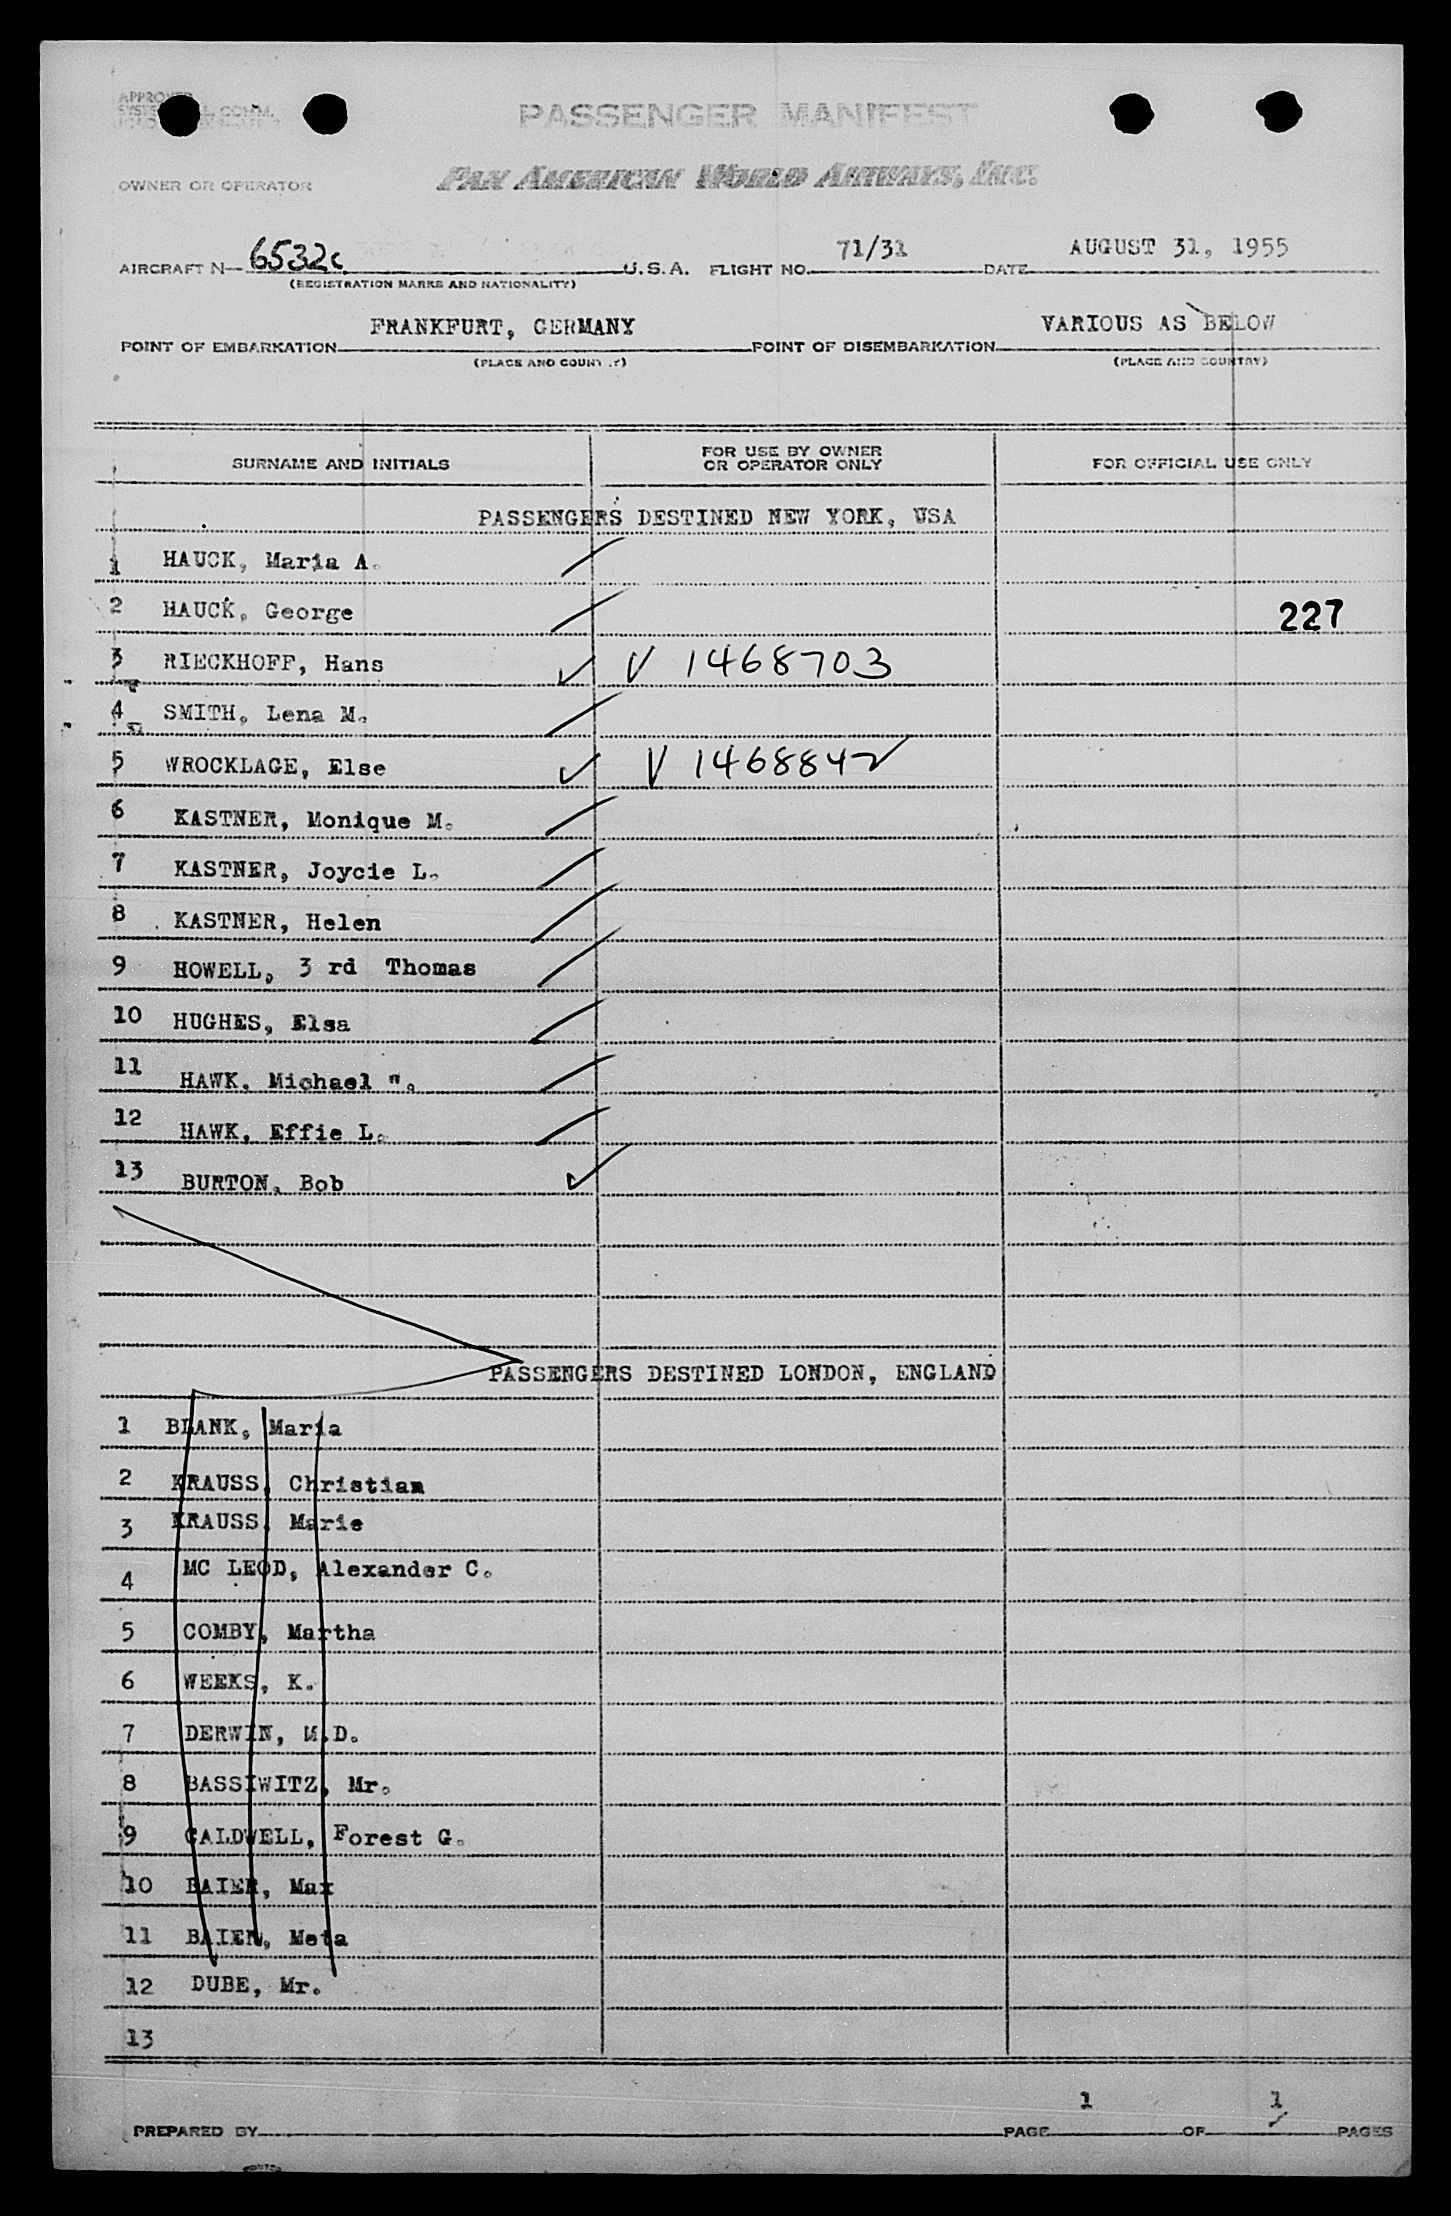 PASSENGER MANIFEST
PAN AMERICAN WORLD AIRWAYS, INC.
OWNER OR OPERATOR
AIRCRAFT N— 6532c U. S. A. FLIGHT NO. 71/31 DATE AUGUST 31, 1955
(REGISTRATION MARKS AND NATIONALITY)
POINT OF EMBARKATION FRANKFURT, GERMANY POINT OF DISEMBARKATION VARIOUS AS BELOW
(PLACE AND COUNTRY) (PLACE AND COUNTRY)
SURNAME AND INITIALS FOR USE BY OWNER OR OPERATOR ONLY FOR OFFICIAL USE ONLY
PASSENGERS DESTINED NEW YORK, USA
1 HAUCK, Maria A.
2 HAUCK, George 227
3 RIECKHOFF, Hans V 1468703
4 SMITH, Lena M.
5 WROCKLAGE, Else V 1468842
6 KASTNER, Monique M.
7 KASTNER, Joycie L.
8 KASTNER, Helen
9 HOWELL, 3 rd Thomas
10 HUGHES, Elsa
11 HAWK, Michael ".
12 HAWK, Effie L.
13 BURTON, Bob
PASSENGERS DESTINED LONDON, ENGLAND
1 BLANK, Maria
2 KRAUSS, Christian
3 KRAUSS, Marie
4 MC LEOD, Alexander C.
5 COMBY, Martha
6 WEEKS, K.
7 DERWIN, M.D.
8 BASSIWITZ, Mr.
9 CALDWELL, Forest G.
10 BAIER, Max
11 BAIER, Meta
12 DUBE, Mr.
13
PREPARED BY PAGE 1 OF 1 PAGES